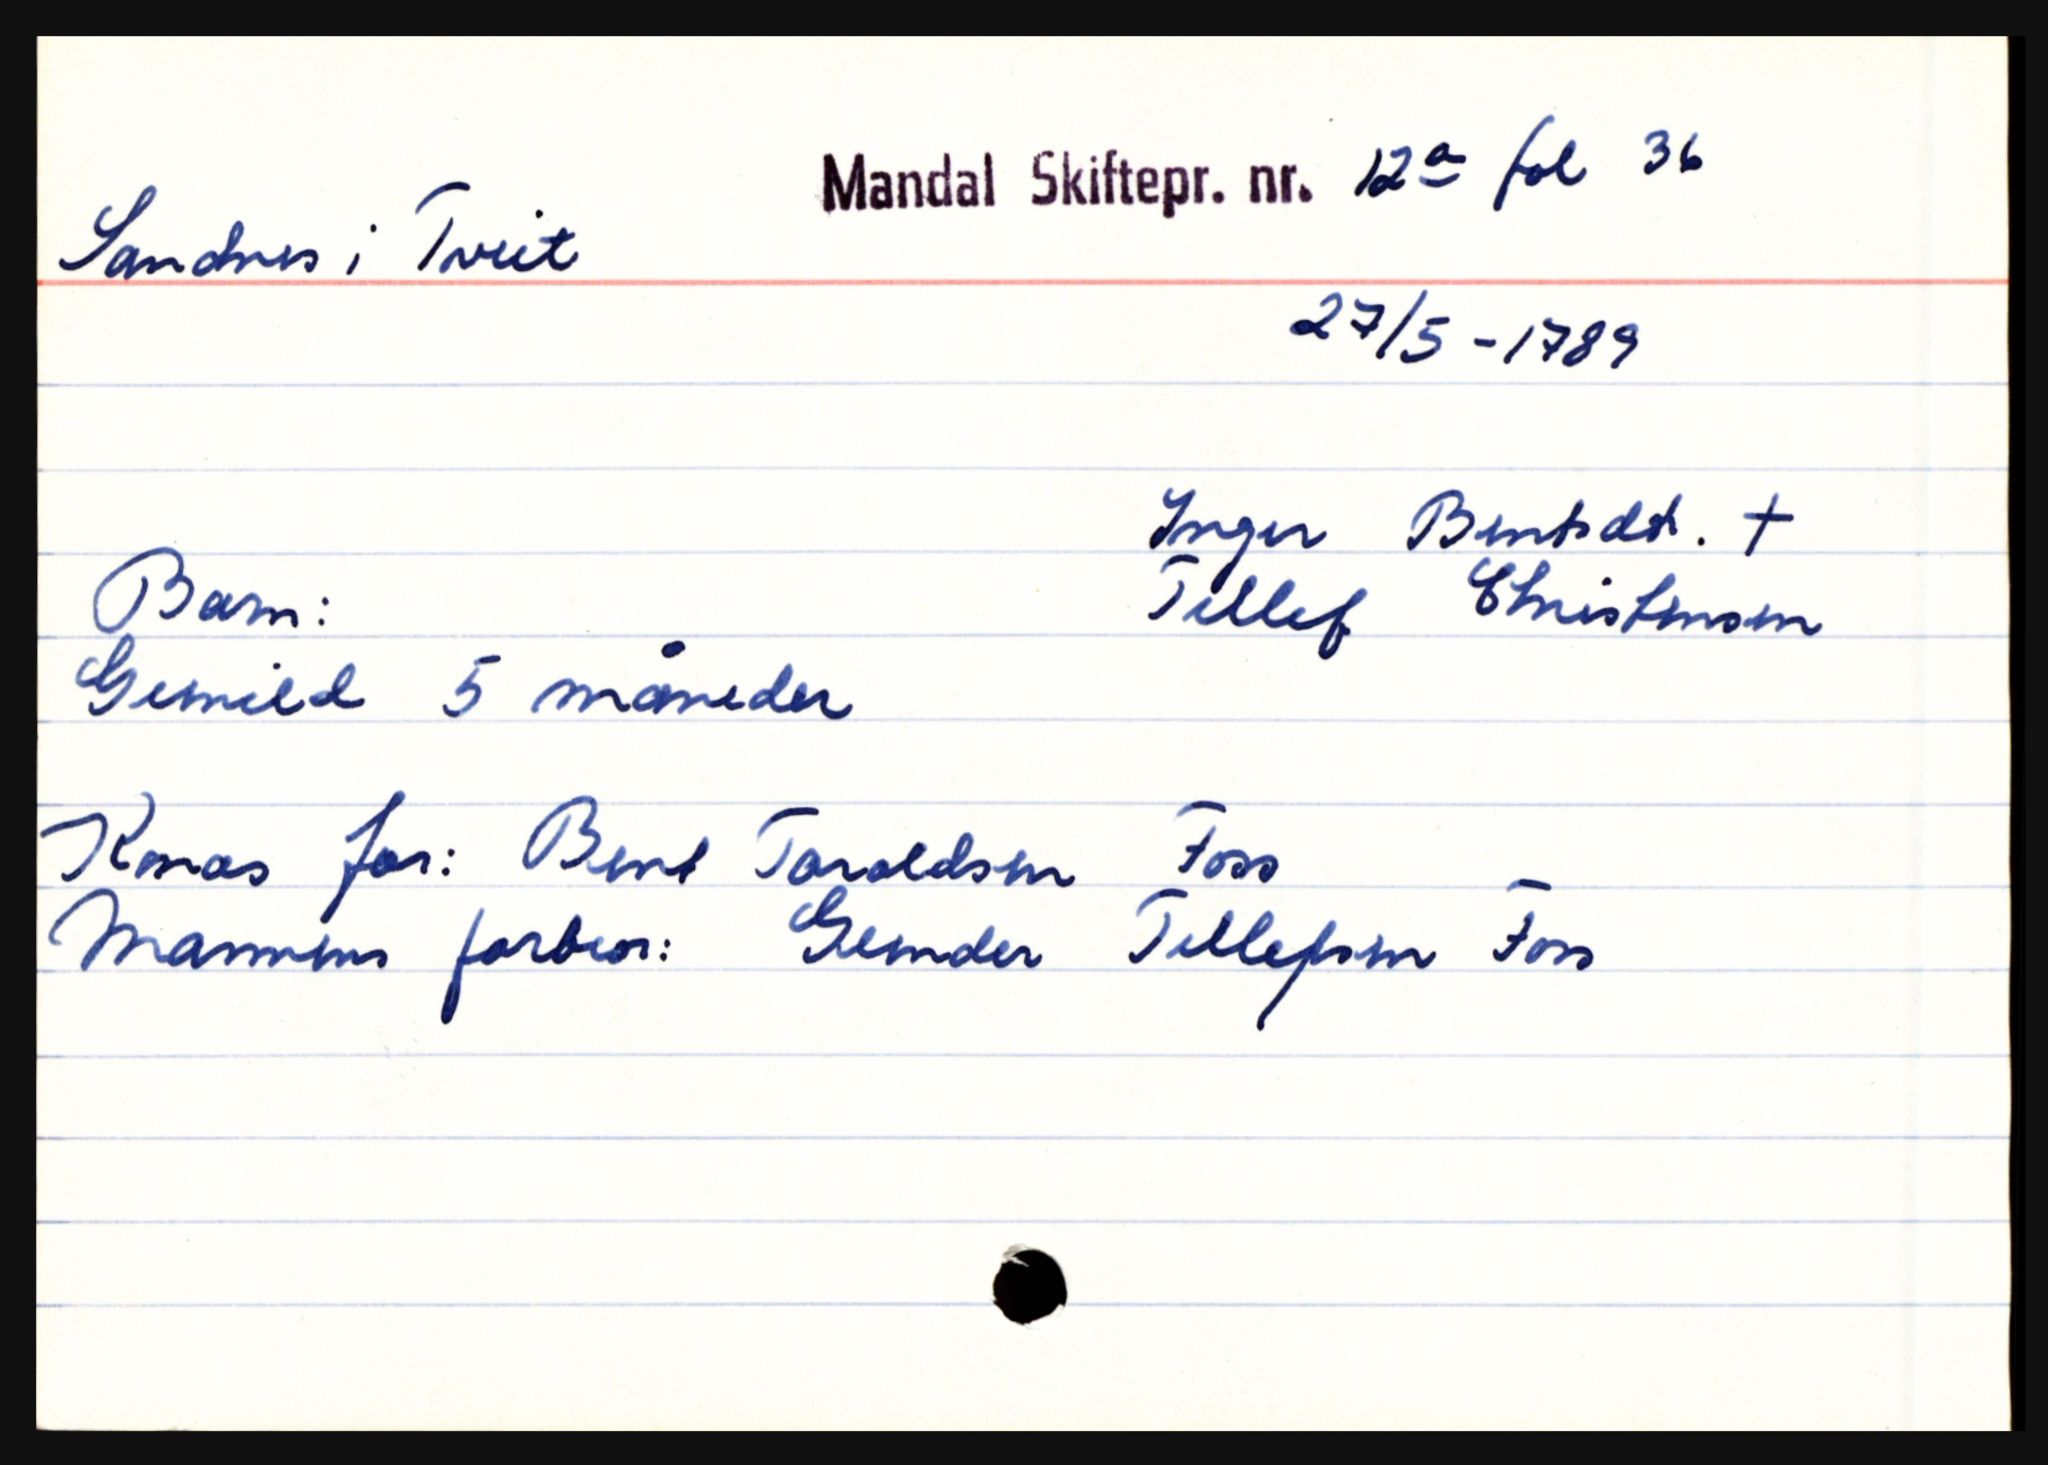 Mandal Skiftepr. nr. 12a fol 36
Sandnes i Tveit
27/5-1789
Inger Bentsdt. +
Tellef Christensen
Barn:
Gunild 5 måneder
Konas far: Bent Taraldsen Foss
Mannens farbror: Gunder Tellefsen Foss